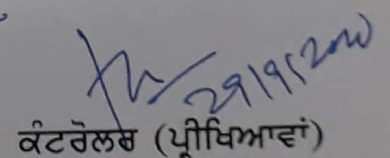 29/9/2010
ਕੰਟਰੋਲਰ (ਪ੍ਰੀਖਿਆਵਾਂ)